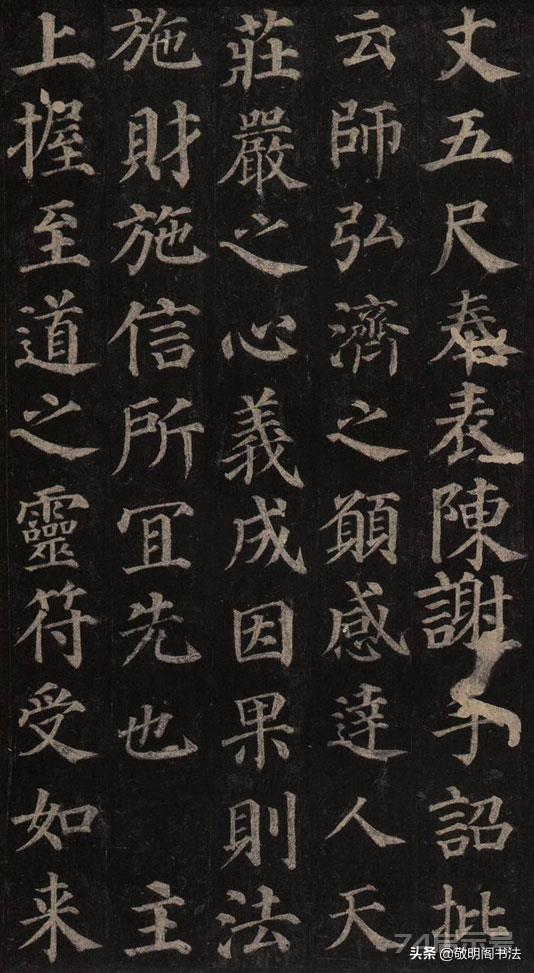 丈五尺奉表陳謝手詔批
云師弘濟之願感逹人天
莊嚴之心義成因果則法
施財施信所冝先也 主
上握至道之靈符受如来
头条 @敬明阁书法